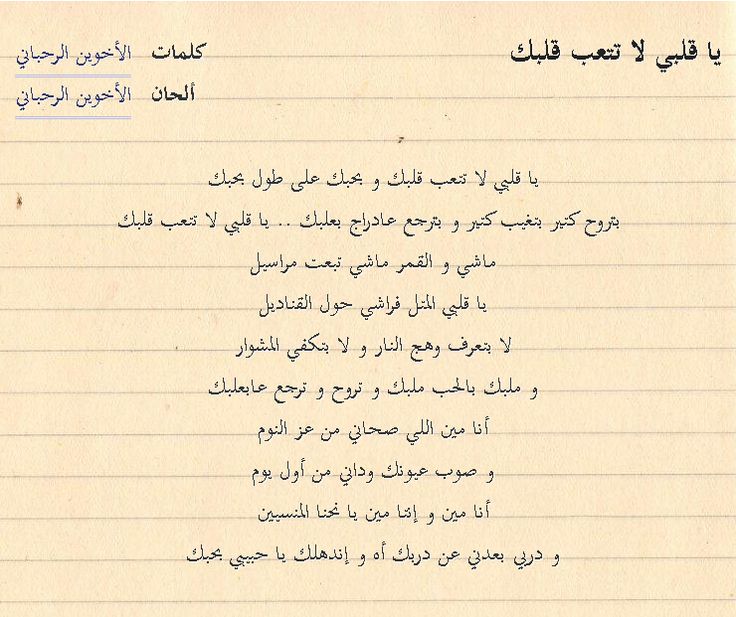 يا قلبي لا تتعب قلبك
كلمات الأخوين الرحباني
ألحان الأخوين الرحباني
يا قلبي لا تتعب قلبك و بحبك على طول بحبك
بتروح كتير بتغيب كتير و بترجع عادراج بعلبك .. يا قلبي لا تتعب قلبك
ماشي و القمر ماشي تبعت مراسيل
يا قلبي المتل فراشي حول القناديل
لا بتعرف وهج النار و لا بتكفي المشوار
و ملبك بالحب ملبك و تروح و ترجع عابعلبك
أنا مين اللي صحاني من عز النوم
و صوب عيونك وداني من أول يوم
أنا مين و إنتا مين يا نحنا المنسيين
و دربي بعدني عن دربك أه و إندهلك يا حبيبي بحبك